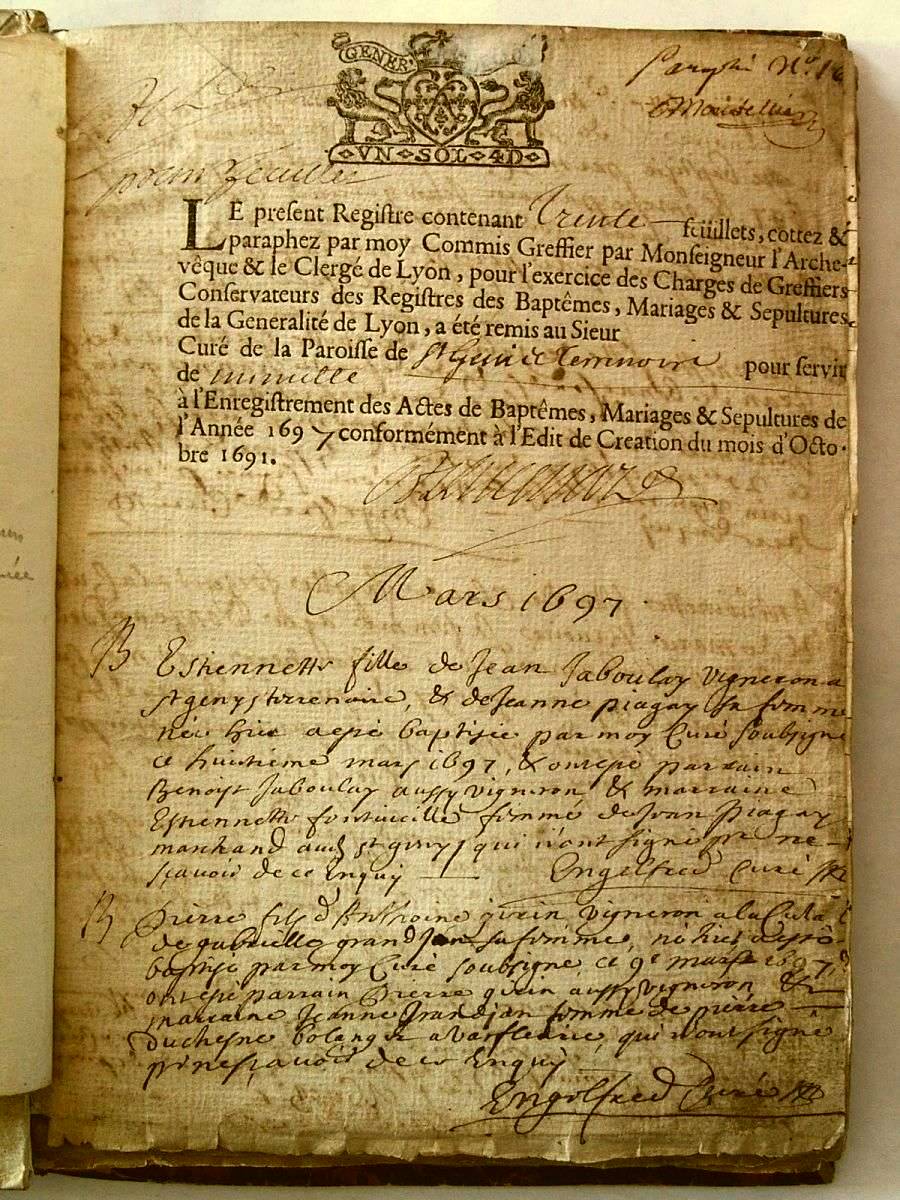 GENER
VN SOL 4D
prem feuillet
LE present Registre contenant trente feüillets, cottez &
paraphez par moy Commis Greffier par Monseigneur l'Arche-
vêque & le Clergé de Lyon, pour l'exercice des Charges de Greffiers
Conservateurs des Registres des Baptêmes, Mariages & Sepultures
de la Generalité de Lyon, a été remis au Sieur
Curé de la Paroisse de St Genis Terrenoire pour servir
de minutte
à l'Enregistrement des Actes de Baptêmes, Mariages & Sepultures de
l'Année 1697 conformément à l'Edit de Creation du mois d'Octo-
bre 1691.
Mars 1697
B Estiennette fille de Jean Jaboulay vigneron a
st genys terrenoire, & de Jeanne piagay sa femme
née hier a epé baptisée par moy Curé soubsigné
ce huitieme mars 1697, & ont epé parrain
Benoist Jaboulay aussy vigneron & marraine
Estiennette femme de Jean Piagay
marchand aud st genys qui n'ont signé pr ne
sçavoir de ce Enquy Engelfred Curé
B Pierre fils d'Anthoine girin vigneron a la Cula
de gabrielle grandJan sa femme, né hier a esté
baptisé par moy Curé soubsigné ce 9e mars 1697
ont epé parrain Pierre girin aussy vigneron &
marraine Jeanne Grandjan femme de pierre
Duchesne bolangier qui n'ont signé
pr ne sçavoir de ce Enquy
Engelfred Curé